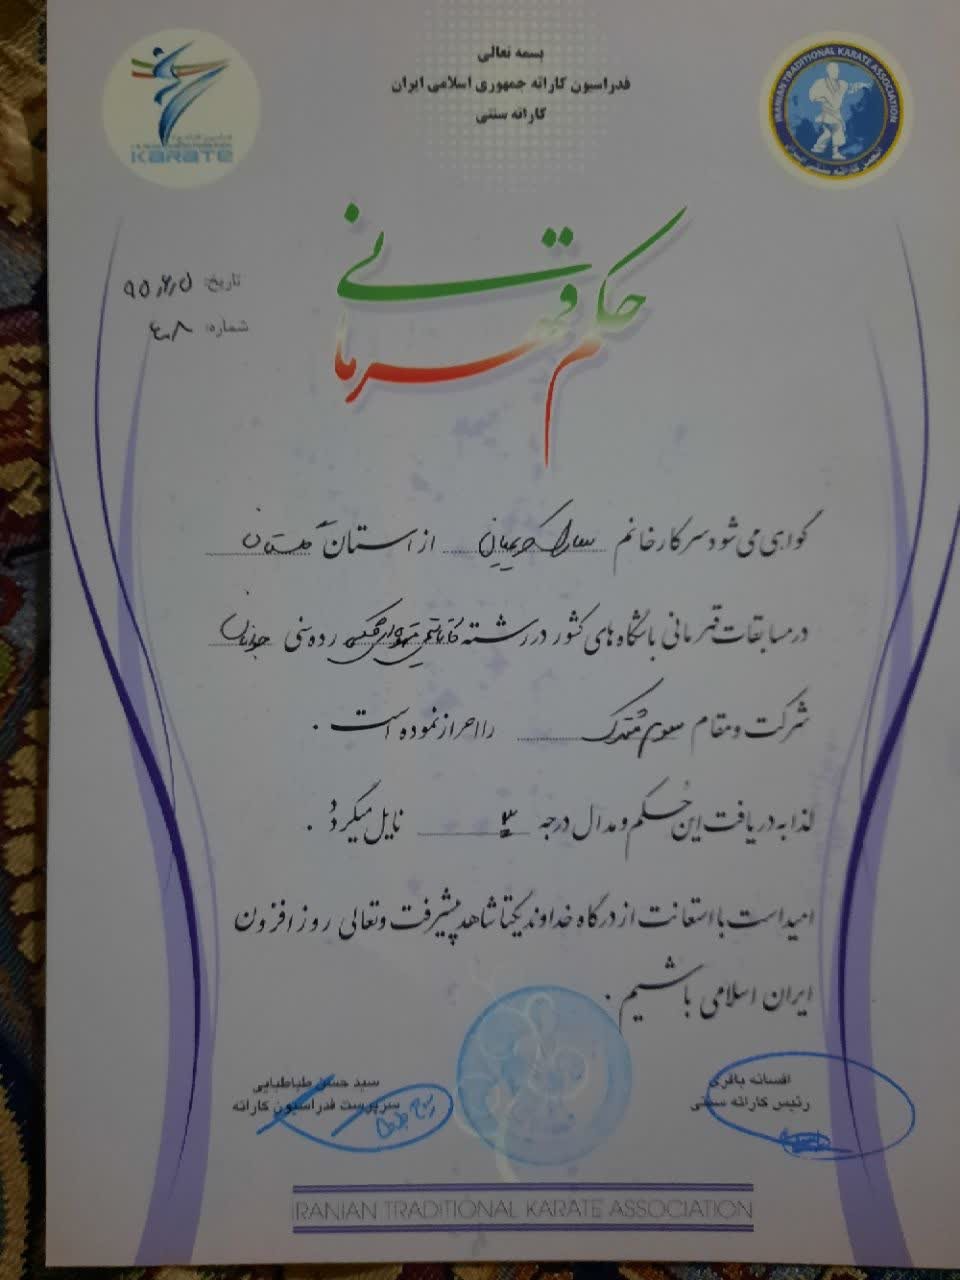 بسمه تعالی
فدراسیون کاراته جمهوری اسلامی ایران
کاراته سنتی
KARATE
IRANIAN TRADITIONAL KARATE ASSOCIATION
انجمن کاراته سنتی ایران
حکم قهرمانی
تاریخ: ۹۵٫۶٫۵
شماره: ۴۰۸
گواهی می شود سرکار خانم سارا کریمیان از استان گلستان
در مسابقات قهرمانی باشگاه های کشور در رشته رده سنی جوانان
شرکت و مقام سوم مشترک را احراز نموده است .
لذا به دریافت این حکم و مدال درجه ۳ نایل میگردد .
امید است با استعانت از درگاه خداوند یکتا شاهد پیشرفت و تعالی روز افزون
ایران اسلامی باشیم .
افسانه باقری
رئیس کاراته سنتی
سید حسن طباطبایی
سرپرست فدراسیون کاراته
IRANIAN TRADITIONAL KARATE ASSOCIATION